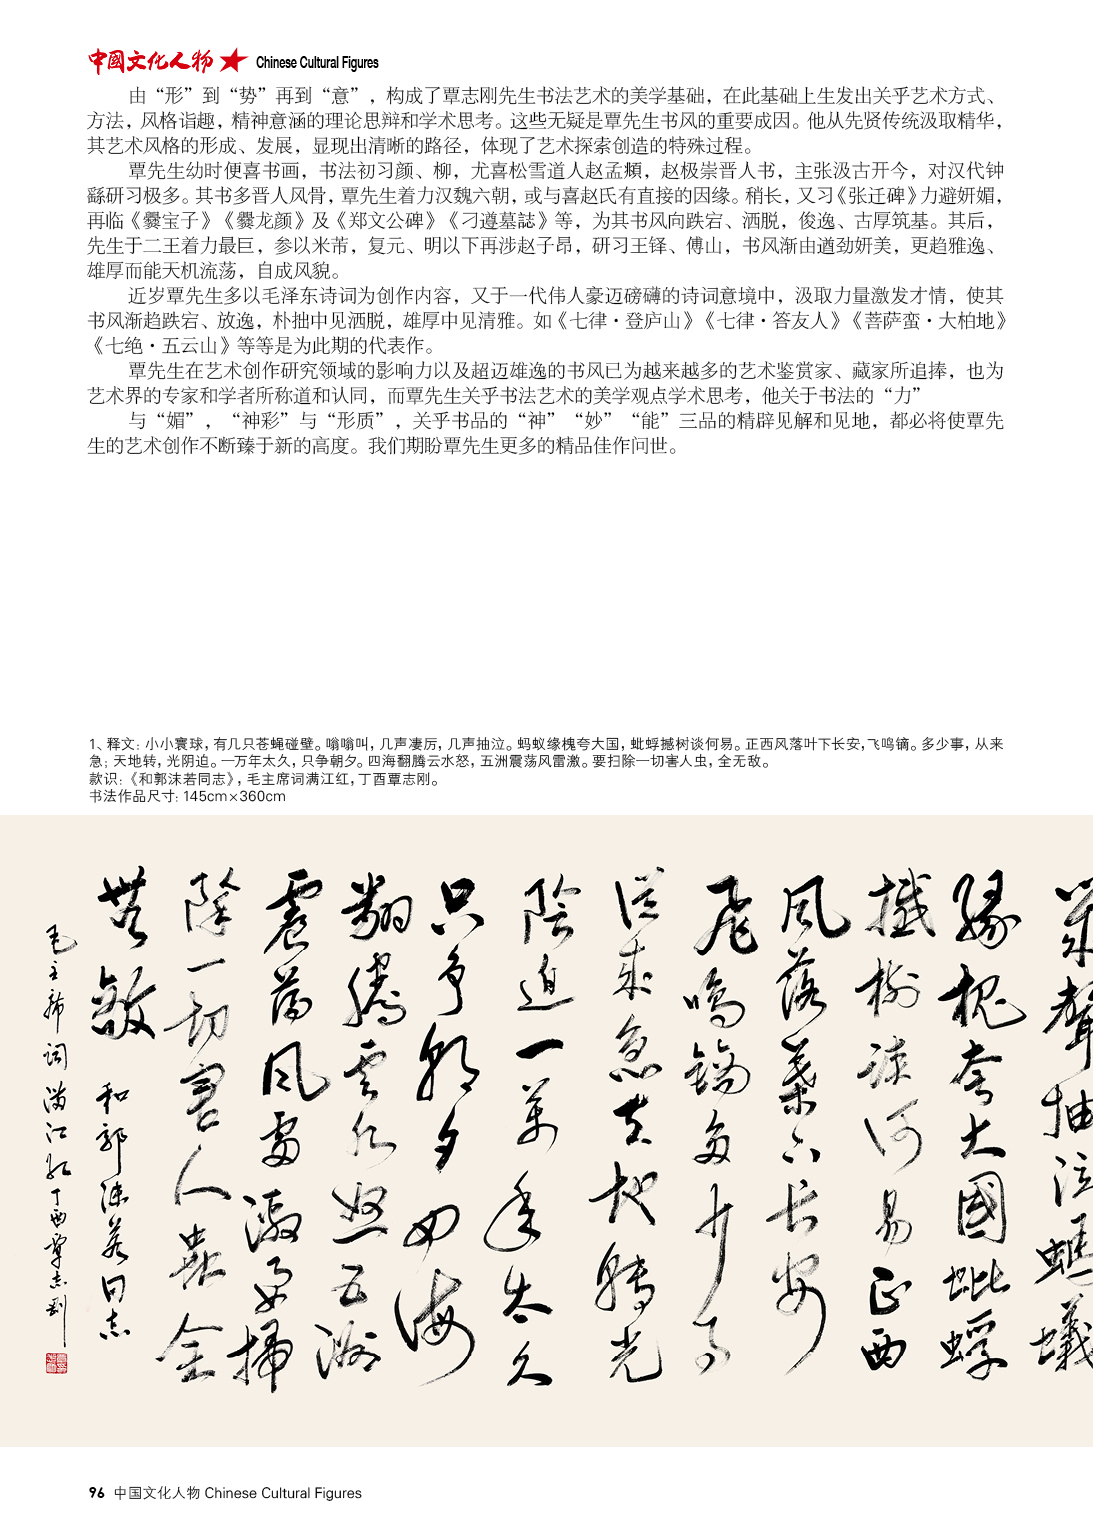 中國文化人物 ★ Chinese Cultural Figures
由“形”到“势”再到“意”，构成了覃志刚先生书法艺术的美学基础，在此基础上生发出关乎艺术方式、
方法，风格诣趣，精神意涵的理论思辩和学术思考。这些无疑是覃先生书风的重要成因。他从先贤传统汲取精华，
其艺术风格的形成、发展，显现出清晰的路径，体现了艺术探索创造的特殊过程。
覃先生幼时便喜书画，书法初习颜、柳，尤喜松雪道人赵孟頫，赵极崇晋人书，主张汲古开今，对汉代钟
繇研习极多。其书多晋人风骨，覃先生着力汉魏六朝，或与喜赵氏有直接的因缘。稍长，又习《张迁碑》力避妍媚，
再临《爨宝子》《爨龙颜》及《郑文公碑》《刁遵墓誌》等，为其书风向跌宕、洒脱，俊逸、古厚筑基。其后，
先生于二王着力最巨，参以米芾，复元、明以下再涉赵子昂，研习王铎、傅山，书风渐由遒劲妍美，更趋雅逸、
雄厚而能天机流荡，自成风貌。
近岁覃先生多以毛泽东诗词为创作内容，又于一代伟人豪迈磅礴的诗词意境中，汲取力量激发才情，使其
书风渐趋跌宕、放逸，朴拙中见洒脱，雄厚中见清雅。如《七律·登庐山》《七律·答友人》《菩萨蛮·大柏地》
《七绝·五云山》等等是为此期的代表作。
覃先生在艺术创作研究领域的影响力以及超迈雄逸的书风已为越来越多的艺术鉴赏家、藏家所追捧，也为
艺术界的专家和学者所称道和认同，而覃先生关乎书法艺术的美学观点学术思考，他关于书法的“力”
与“媚”，“神彩”与“形质”，关乎书品的“神”“妙”“能”三品的精辟见解和见地，都必将使覃先
生的艺术创作不断臻于新的高度。我们期盼覃先生更多的精品佳作问世。
1、释文：小小寰球，有几只苍蝇碰壁。嗡嗡叫，几声凄厉，几声抽泣。蚂蚁缘槐夸大国，蚍蜉撼树谈何易。正西风落叶下长安，飞鸣镝。多少事，从来
急；天地转，光阴迫。一万年太久，只争朝夕。四海翻腾云水怒，五洲震荡风雷激。要扫除一切害人虫，全无敌。
款识：《和郭沫若同志》，毛主席词满江红，丁酉覃志刚。
书法作品尺寸：145cm×360cm
幾聲抽泣螞蟻
緣槐夸大國蚍蜉
撼樹談何易正西
風落葉下長安
飛鳴鏑多少事
從來急天地轉光
陰迫一萬年太久
只爭朝夕四海
翻騰雲水怒五洲
震蕩風雷激要掃
除一切害人蟲全
無敵 和郭沫若同志
毛主席詞滿江紅丁酉覃志剛
96 中国文化人物 Chinese Cultural Figures